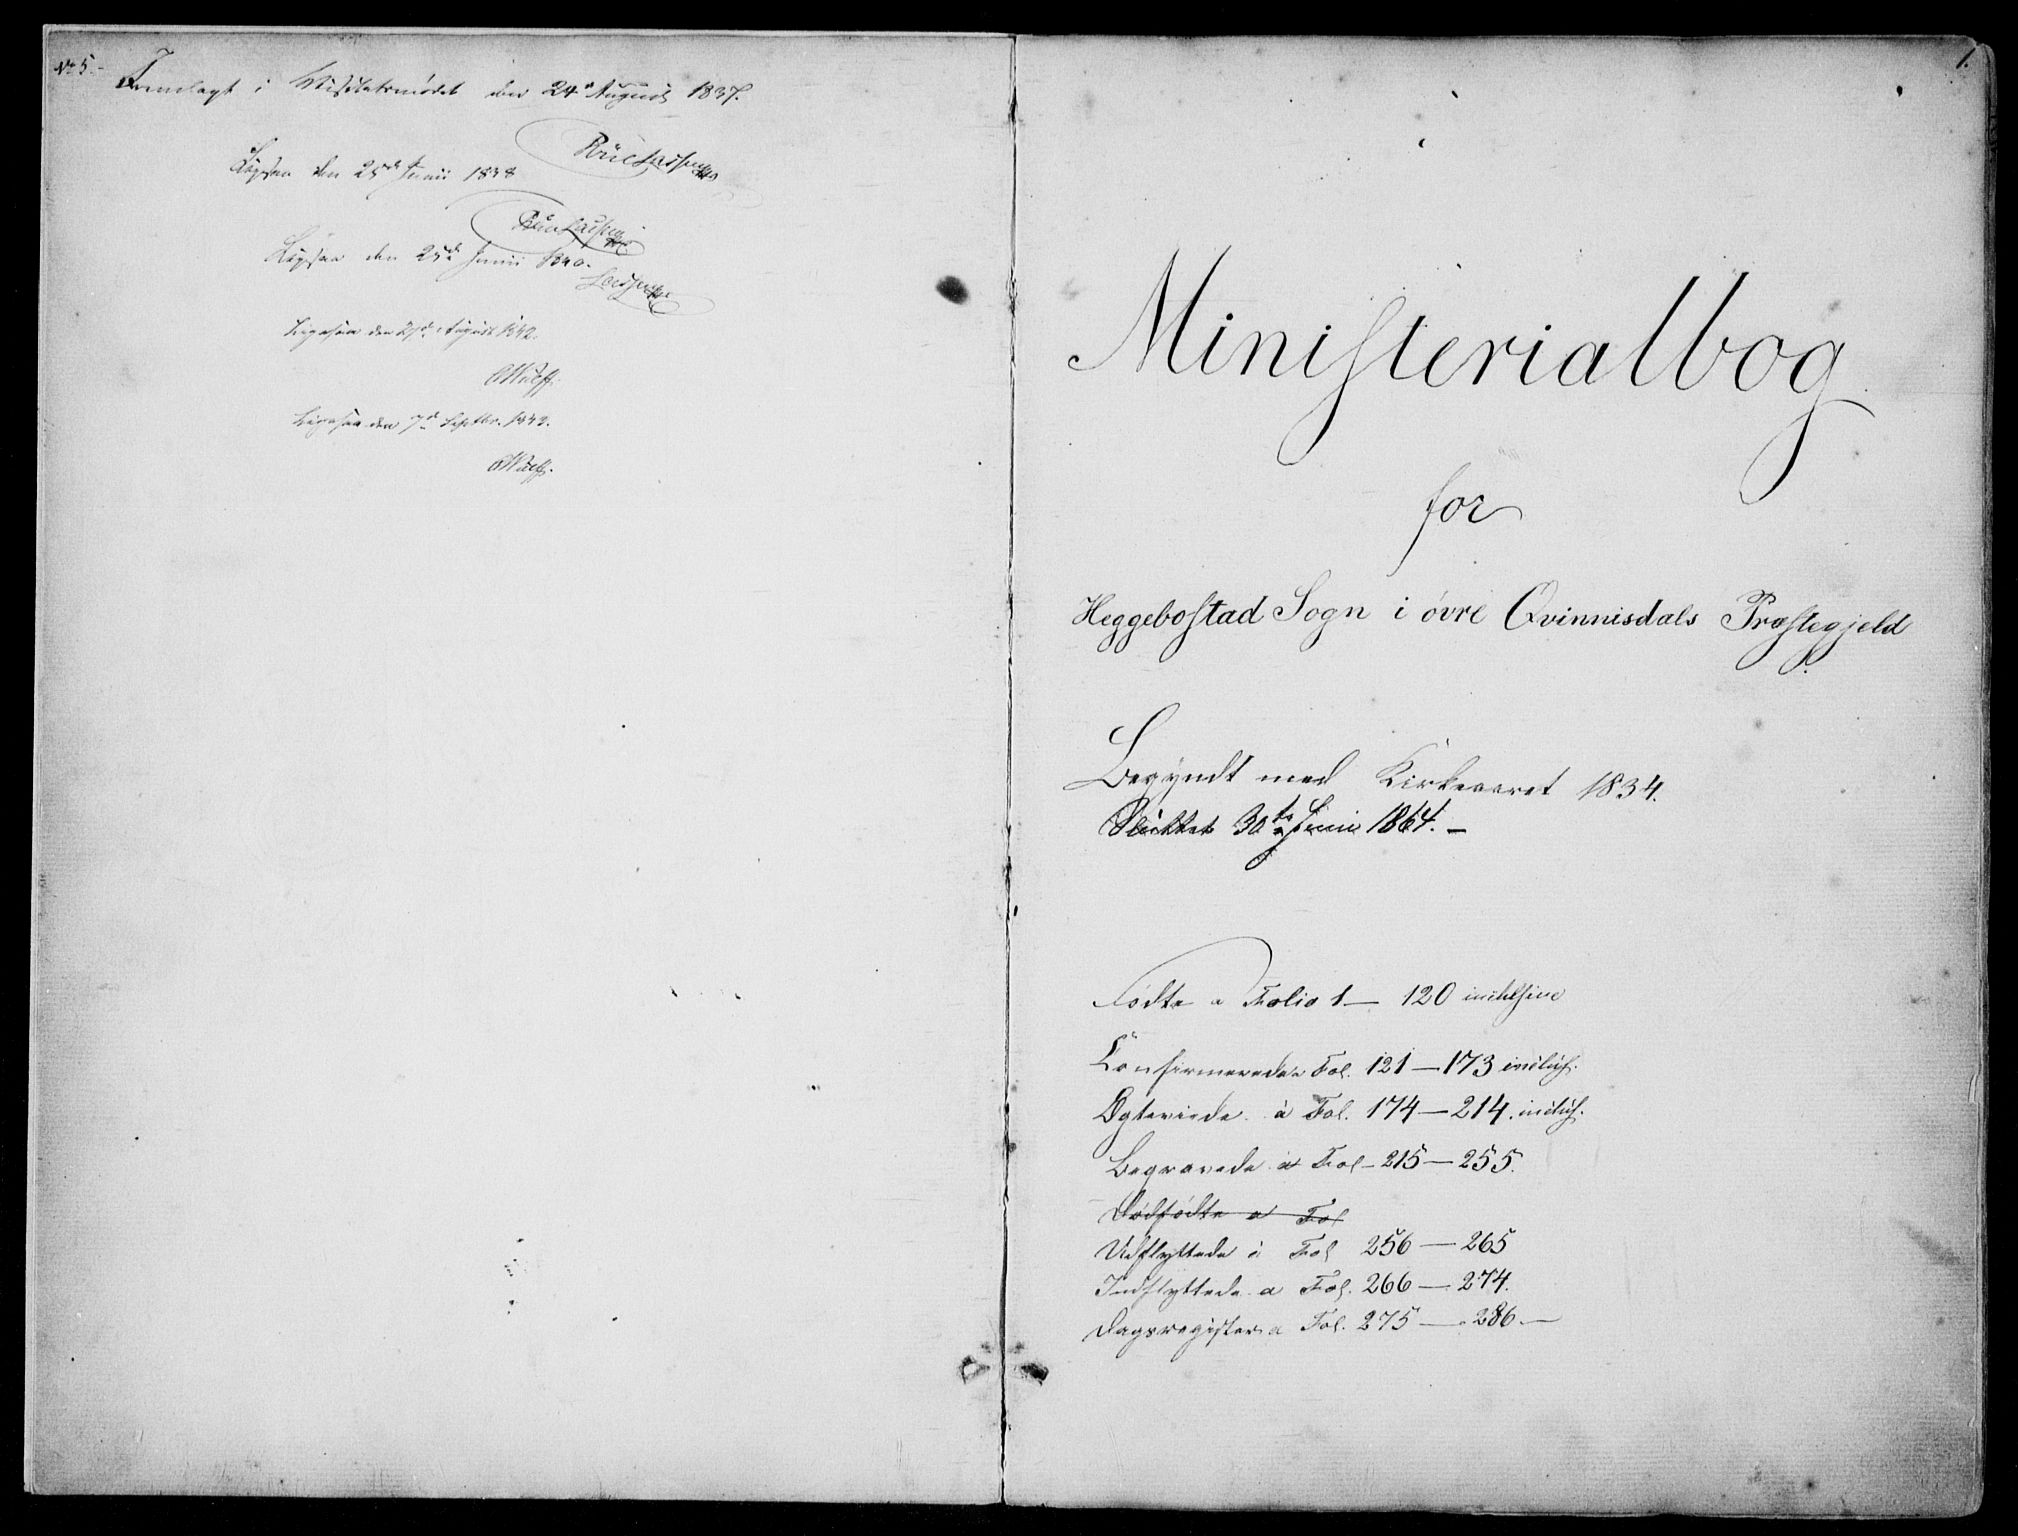 No 5.
Fremlagt i Visitatsmødet den 24de August 1837.
Ligesaa den 25de Junii 1838
Ligesaa den 25de Junii 1840.
Ligesaa den August 1842.
Ligesaa den 7de Septbr. 1842.
1.
Ministerialbog
for
Heggebostad Sogn i övre Qvinnisdals Præstegjeld
Begyndt med Kirkeaaret 1834.
Sluttet 30te Juni 1864. —
Fødte a Folio 1 — 120 inclusive
Confirmerede a Fol. 121 — 173 inclus.
Ægteviede à Fol. 174 — 214. inclus.
Begravede à Fol. 215 — 255.
Dödfödte a Fol
Udflyttede à Fol 256 — 265
Indflyttede a Fol. 266 — 274.
Dagsregister a Fol. 275 — 286 —